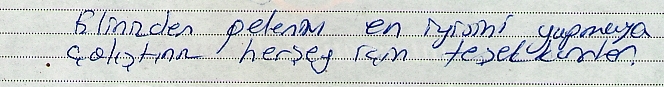 Elinizden gelenin en iyisini yapmaya
çalıştınız herşey için teşekkürler.